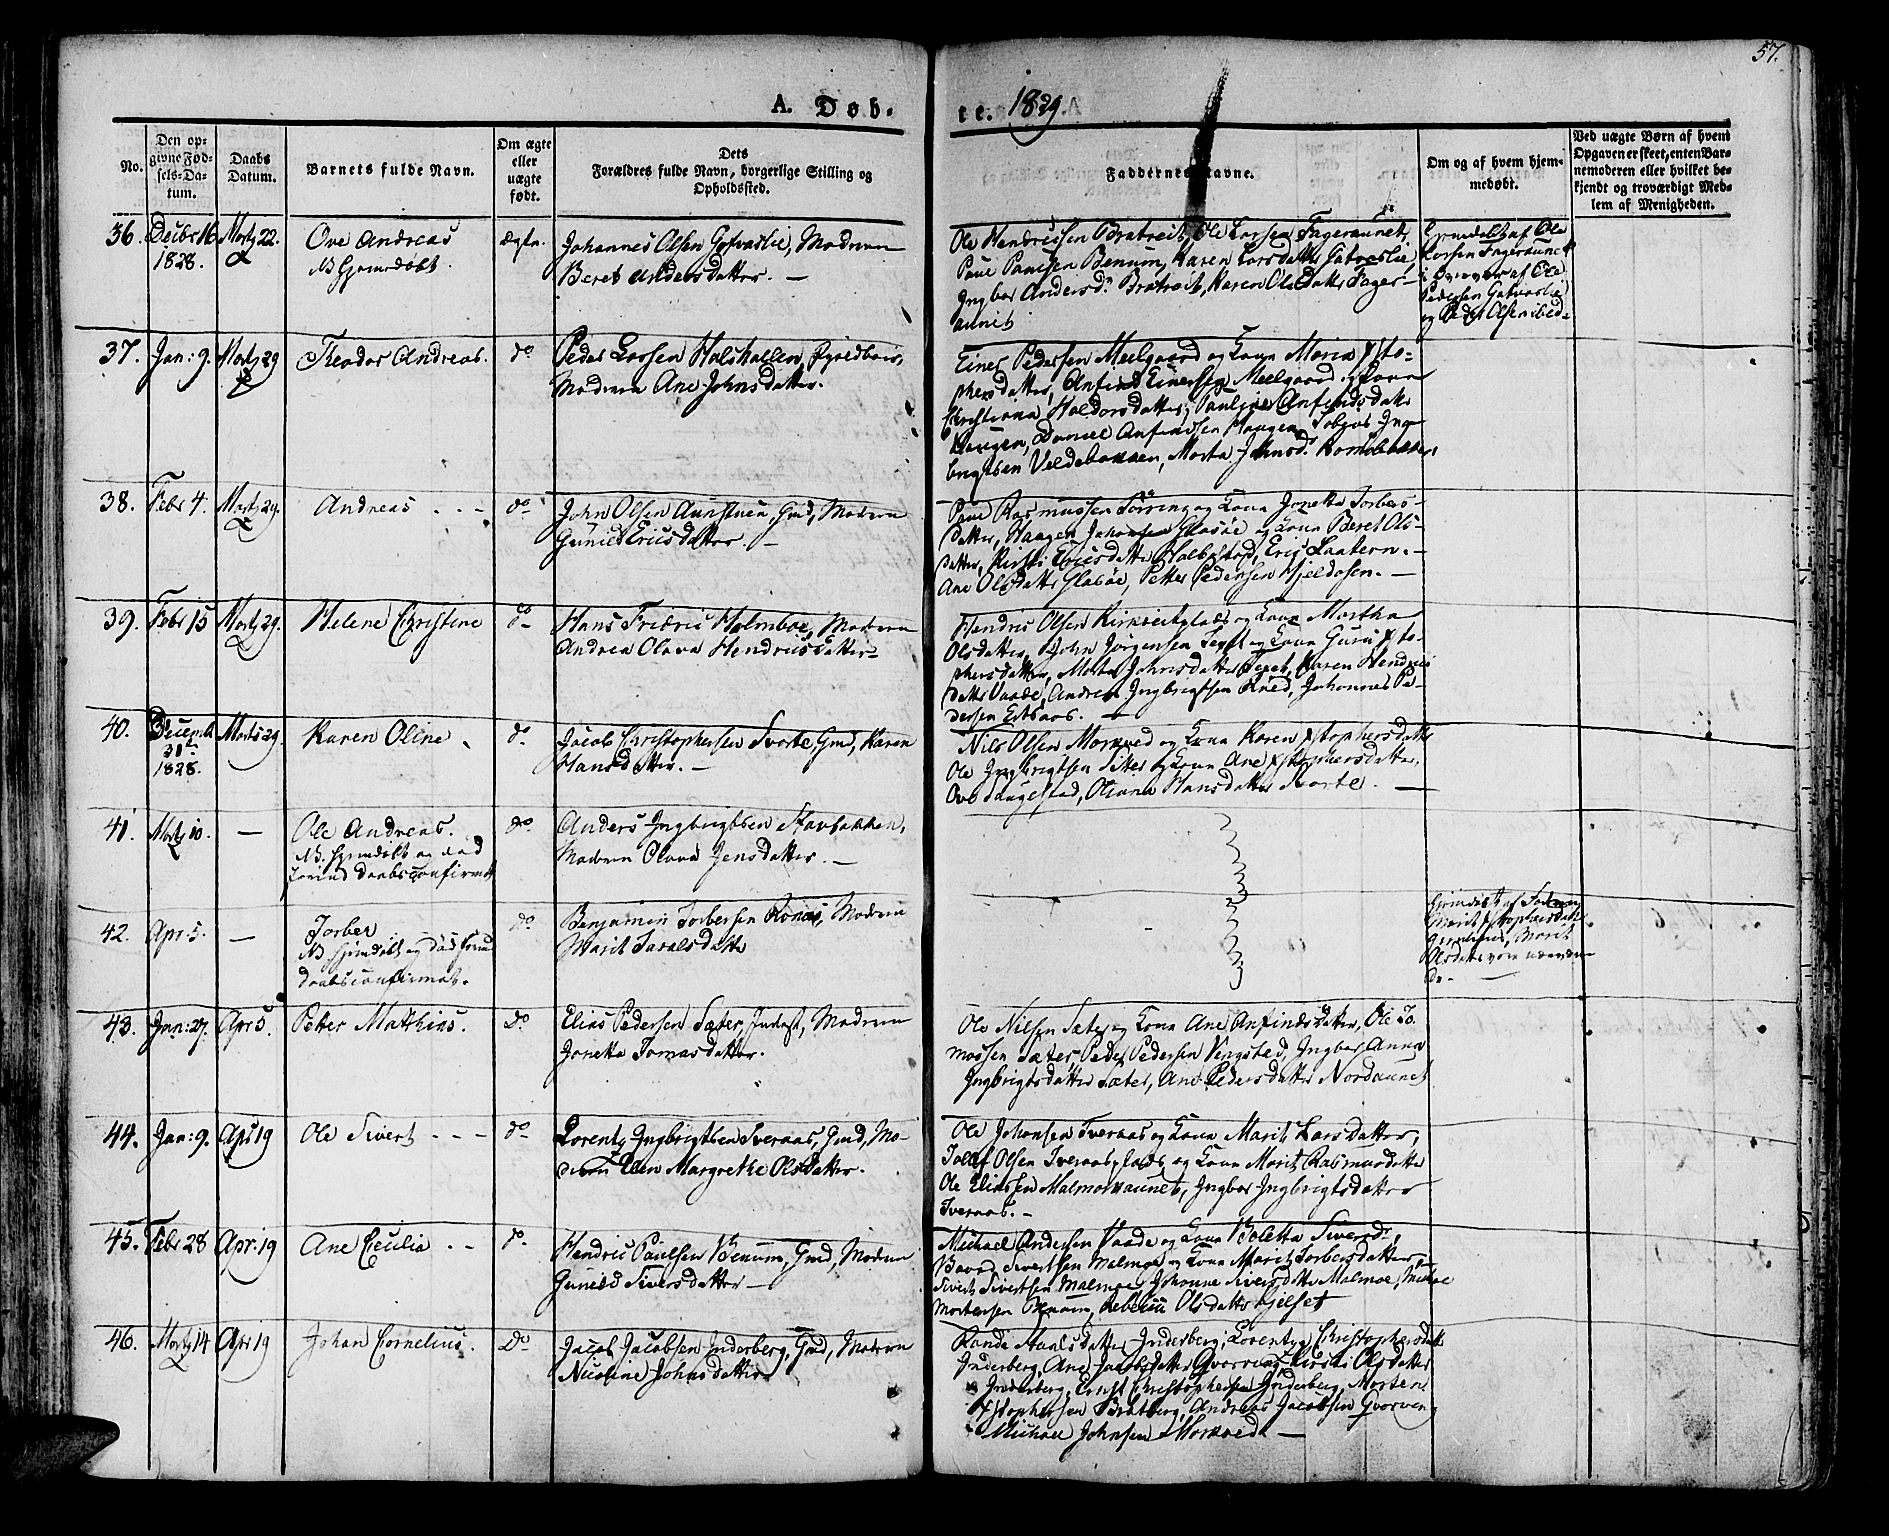 57.
A. Døb-
te. 1829.
No.
Den op-
givne Fød-
sels-Da-
tum.
Daabs
Datum.
Barnets fulde Navn.
Om ægte
eller
uægte
født.
Dets
Forældres fulde Navn, borgerlige Stilling og
Opholdssted.
Faddernes Navne.
Om og af hvem hjem-
medøbt.
Ved uægte Børn af hvem
Opgaven er skeet, enten Bar-
nemoderen eller hvilket be-
kjendt og troværdigt Med-
lem af Menigheden.
36. Decbr 16 1828. Martz 22.
Ove Andreas
NB hjemdøbt.
Ægte.
Johannes Olsen Gotvaslie, Moderen
Beret Andersdatter. —
Ole Hendricsen Bratreit, Ole Larsen Fageraunet,
Paul Paulsen Benum, Karen Larsdatter Gotvaslie,
Ingbor Andersd. Bratreit, Karen Olsdatter Fager-
aunet
Hjemdøbt af Ole
Larsen Fageraunet
i Overvær af Ole
Pedersen Gotvaslie
og Peder Olsen ibid.
37. Jan: 9. Martz 29
Theodor Andreas.
do
Peder Larsen Halshallen,
Moderen Ane Johnsdatter.
Einer Pedersen Meelgaard og Kona Maria Xsto-
phersdatter, Anfind Einersen Meelgaard og Kona
Christiana Haldorsdatter, Pauline Anfindsdatter
Haugen, Daniel Anfindsen Haugen, Tobias Ing-
brigtsen Veldebakken, Marta Johnsd.
38. Febr 4. Martz 29.
Andreas - - -
do
John Olsen Aunstuen, Gmd, Moderen
Gunild Ericsdatter. —
Paul Rasmussen Sørring og Kona Jonetta Torbers-
datter, Haagen Johansen Glasøe og Kona Beret Ols-
datter, Kirsti Ericsdatter Halbstad, Eric Laatern. —
Ane Olsdatter Glasøe, Petter Pedersen Hjeldosen. —
39. Febr 15 Martz 29.
Helene Christine
do
Hans Fridric Holmboe, Moderen
Andrea Olava Hendricsdatter
Hendric Olsen Kirkreitplads og Kona Martha
Olsdatter, John Jørgensen Sexst og Kona Guru Xsto-
phersdatter, Marta Johnsdatter Sexet, Karen Hendrics
datter Vaade, Andreas Ingbrigtsen Kned, Johannes Pe-
dersen Edsaas. —
40. Decembr 31te 1828. Martz 29.
Karen Oline
do
Jacob Christophersen Svorte, Gmd, Karen
Hansdatter. —
Nils Olsen Morkved og Kona Karen Xstophersdatter
Ole Ingbrigtsen Sitter og Kona Ane Xstophersdatter,
Ove Haugestad, Oliana Hansdatter Svorte. —
41. Martz 10. —
Ole Andreas.
NB. hjemdøbt og død
forind daabsconfirmat
do
Anders Ingbrigtsen Stavbakken,
Moderen Olava Jensdatter. —
42. Apr. 5. —
Torber
NB hjemdøbt og død forind
daabsconfirmat.
do
Benjamin Torbersen Ronas, Moderen
Marit Taralsdatter
Hjemdøbt af
Marit Xstophersdatter
Marit
Olsdatter vare nærværen-
de. —
43. Jan: 27. Apr 5.
Petter Mathias.
do
Elias Pedersen Sæter, Inderst, Moderen
Jonetta Tomasdatter.
Ole Nilsen Sæter og Kona Ane Anfindsdatter, Ole To-
massen Sæter, Peder Pedersen Vengsted, Ingbor Anna
Ingbrigtsdatter Sæter, Ane Pedersdatter Nordaunet
44. Jan: 9. Apr 19
Ole Sivert - - -
do
Lorentz Ingbrigtsen Tveraas, Gmd, Mo-
deren Elen Margrethe Olsdatter.
Ole Johansen Tveraas og Kona Marit Larsdatter,
Tollef Olsen Tveraasplads og Kona Marit Rasmusdatter
Ole Eliassen Malmoeaunet, Ingbor Ingbrigtsdatter
Tveraas. —
45. Febr 28 Apr. 19
Ane Cecilia - -
do
Hendric Paulsen Benum, Gmd, Moderen
Gunild Siversdatter —
Michael Andersen Vaade og Kona Boletta Siversd.,
Baard Sivertsen Malmoe og Kona Marit Torbersdatter,
Sivert Sivertsen Malmoe, Johanna Siversdatter Malmoe, Michael
Mortensen Benum, Rebecca Olsdatter Hjelset
46. Martz 14 Apr 19
Johan Cornelius.
do
Jacob Jacobsen Inderberg, Gmd, Moderen
Nicoline Johnsdatter
Randi Aasisdatter Inderberg, Lorentz Christophersdatter
Inderberg, Ane Jacobsdatter Qvorven, Kirsti Olsdatter
Inderberg, Ernst Christophersen Inderberg, Morten
Xstophersen Bratberg, Andreas Jacobsen Qvorven,
Michael Johnsen Morkved —